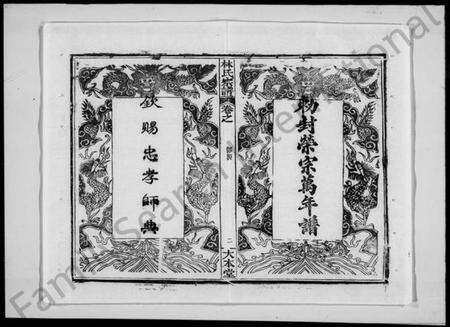 勅封榮宗萬年譜
林氏宗譜 卷之
二 大本堂
欽賜忠孝師典
FamilySearch International